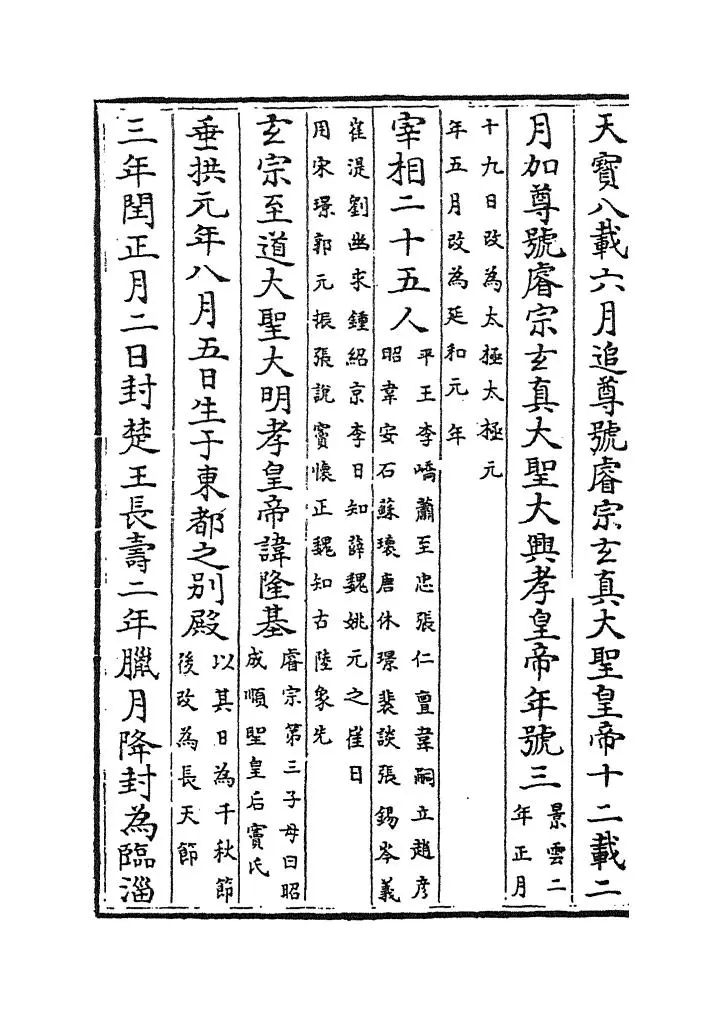 天寳八載六月追尊號睿宗玄真大聖皇帝十二載二
月加尊號睿宗玄真大聖大興孝皇帝年號三景雲二
年正月
十九日改為太極太極元
年五月改為延和元年
宰相二十五人平王李嶠蕭至忠張仁亶韋嗣立趙彥
昭韋安石蘇瓌唐休璟裴談張錫岑義
崔湜劉幽求鍾紹京李日知薛魏姚元之崔日
用宋璟郭元振張說竇懷正魏知古陸象先
玄宗至道大聖大明孝皇帝諱隆基睿宗第三子母曰昭
成順聖皇后竇氏
垂拱元年八月五日生于東都之别殿以其日為千秋節
後改為長天節
三年閏正月二日封楚王長壽二年臘月降封為臨淄